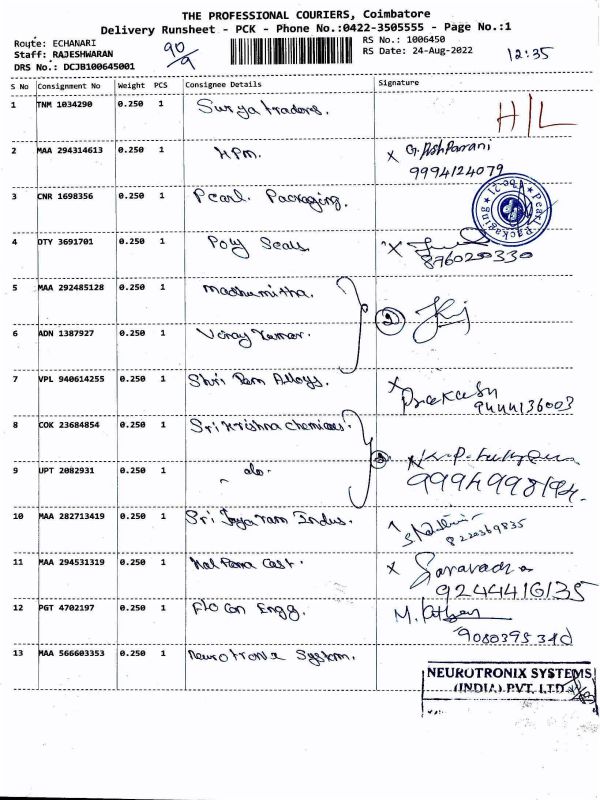 THE PROFESSIONAL COURIERS, Coimbatore
Delivery Runsheet - PCK - Phone No.:0422-3505555 - Page No.:1
Route: ECHANARI
Staff: RAJESHWARAN
DRS No.: DCJB100645001
90/9
RS No.: 1006450
RS Date: 24-Aug-2022
12:35
S No Consignment No Weight PCS Consignee Details Signature
1 TNM 1034290 0.250 1 Surya traders. H/L
2 MAA 294314613 0.250 1 HPM. X
9994124079
3 CNR 1698356 0.250 1 Pearl Packaging. Pearl Packaging
4 DTY 3691701 0.250 1 Poly Seals X
876020330
5 MAA 292485128 0.250 1 Madhumitha.
2
6 ADN 1387927 0.250 1
7 VPL 940614255 0.250 1 Shri Ram Alloys. X Prakash
9444136003
8 COK 23684854 0.250 1 Sri Krishna chemicals.
9 UPT 2082931 0.250 1 do.
9994998194.
10 MAA 282713419 0.250 1 Sri Jayaram Indus.
8220369835
11 MAA 294531319 0.250 1 Kalpana Cast. X
9244416135
12 PGT 4702197 0.250 1 Flocon Engg.
13 MAA 566603353 0.250 1 Neurotronix System.
NEUROTRONIX SYSTEMS
(INDIA) PVT. LTD